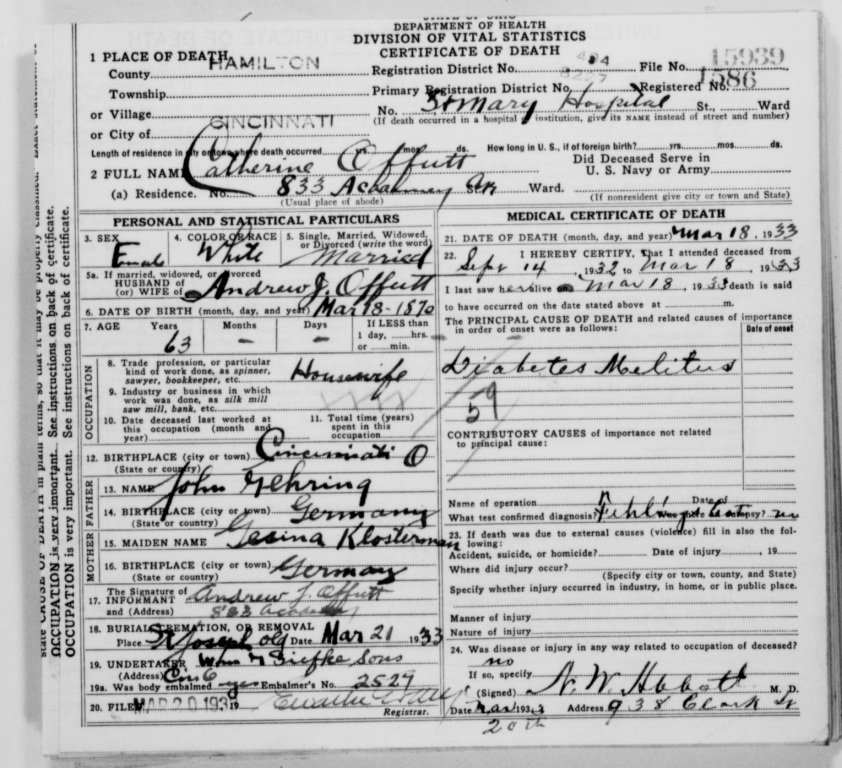 DEPARTMENT OF HEALTH
DIVISION OF VITAL STATISTICS
CERTIFICATE OF DEATH
1 PLACE OF DEATH
County HAMILTON
Registration District No. 494 File No. 15939
Township
Primary Registration District No. 8227 Registered No. 1586
or Village
No. St Mary Hospital St., Ward
(If death occurred in a hospital institution, give its NAME instead of street and number)
or City of CINCINNATI
Length of residence in city or town where death occurred yrs. mos. ds. How long in U. S., if of foreign birth? yrs. mos. ds.
2 FULL NAME Catherine Offutt
Did Deceased Serve in
U. S. Navy or Army
(a) Residence. No. 833 Ward.
(Usual place of abode) (If nonresident give city or town and State)
PERSONAL AND STATISTICAL PARTICULARS
3. SEX Female
4. COLOR OR RACE White
5. Single, Married, Widowed, or Divorced (write the word) Married
5a. If married, widowed, or divorced
HUSBAND of
(or) WIFE of Andrew J. Offutt
6. DATE OF BIRTH (month, day, and year) Mar 18-1870
7. AGE Years 63 Months - Days - If LESS than 1 day, hrs. or min.
OCCUPATION
8. Trade profession, or particular kind of work done, as spinner, sawyer, bookkeeper, etc. Housewife
9. Industry or business in which work was done, as silk mill saw mill, bank, etc.
10. Date deceased last worked at this occupation (month and year)
11. Total time (years) spent in this occupation
12. BIRTHPLACE (city or town) Cincinnati O
(State or country)
FATHER
13. NAME John Gehring
14. BIRTHPLACE (city or town) Germany
(State or country)
MOTHER
15. MAIDEN NAME Gesina Klosterman
16. BIRTHPLACE (city or town) Germany
(State or country)
17. The Signature of
INFORMANT Andrew J. Offutt
and (Address) 833 Academy
18. BURIAL, CREMATION, OR REMOVAL
Place St Joseph old Date Mar 21 1933
19. UNDERTAKER Sons
(Address) Cin O
19a. Was body embalmed yes Embalmer's No. 2529
20. FILED MAR 20 193 19
Registrar.
MEDICAL CERTIFICATE OF DEATH
21. DATE OF DEATH (month, day, and year) Mar 18, 1933
22. I HEREBY CERTIFY, That I attended deceased from
Sept 14, 1932 to Mar 18, 1933
I last saw her alive on Mar 18, 1933 death is said
to have occurred on the date stated above at m.
The PRINCIPAL CAUSE OF DEATH and related causes of importance
in order of onset were as follows:
Date of onset
Diabetes Melitus
59
CONTRIBUTORY CAUSES of importance not related
to principal cause:
Name of operation Date of
What test confirmed diagnosis? Fehling's test Was there autopsy? no
23. If death was due to external causes (violence) fill in also the following:
Accident, suicide, or homicide? Date of injury , 19
Where did injury occur?
(Specify city or town, county, and State)
Specify whether injury occurred in industry, in home, or in public place.
Manner of injury
Nature of injury
24. Was disease or injury in any way related to occupation of deceased?
no
If so, specify
(Signed) M. D.
Date Mar 1933 Address 938 Clark St
20th
OCCUPATION is very important. See instructions on back of certificate.